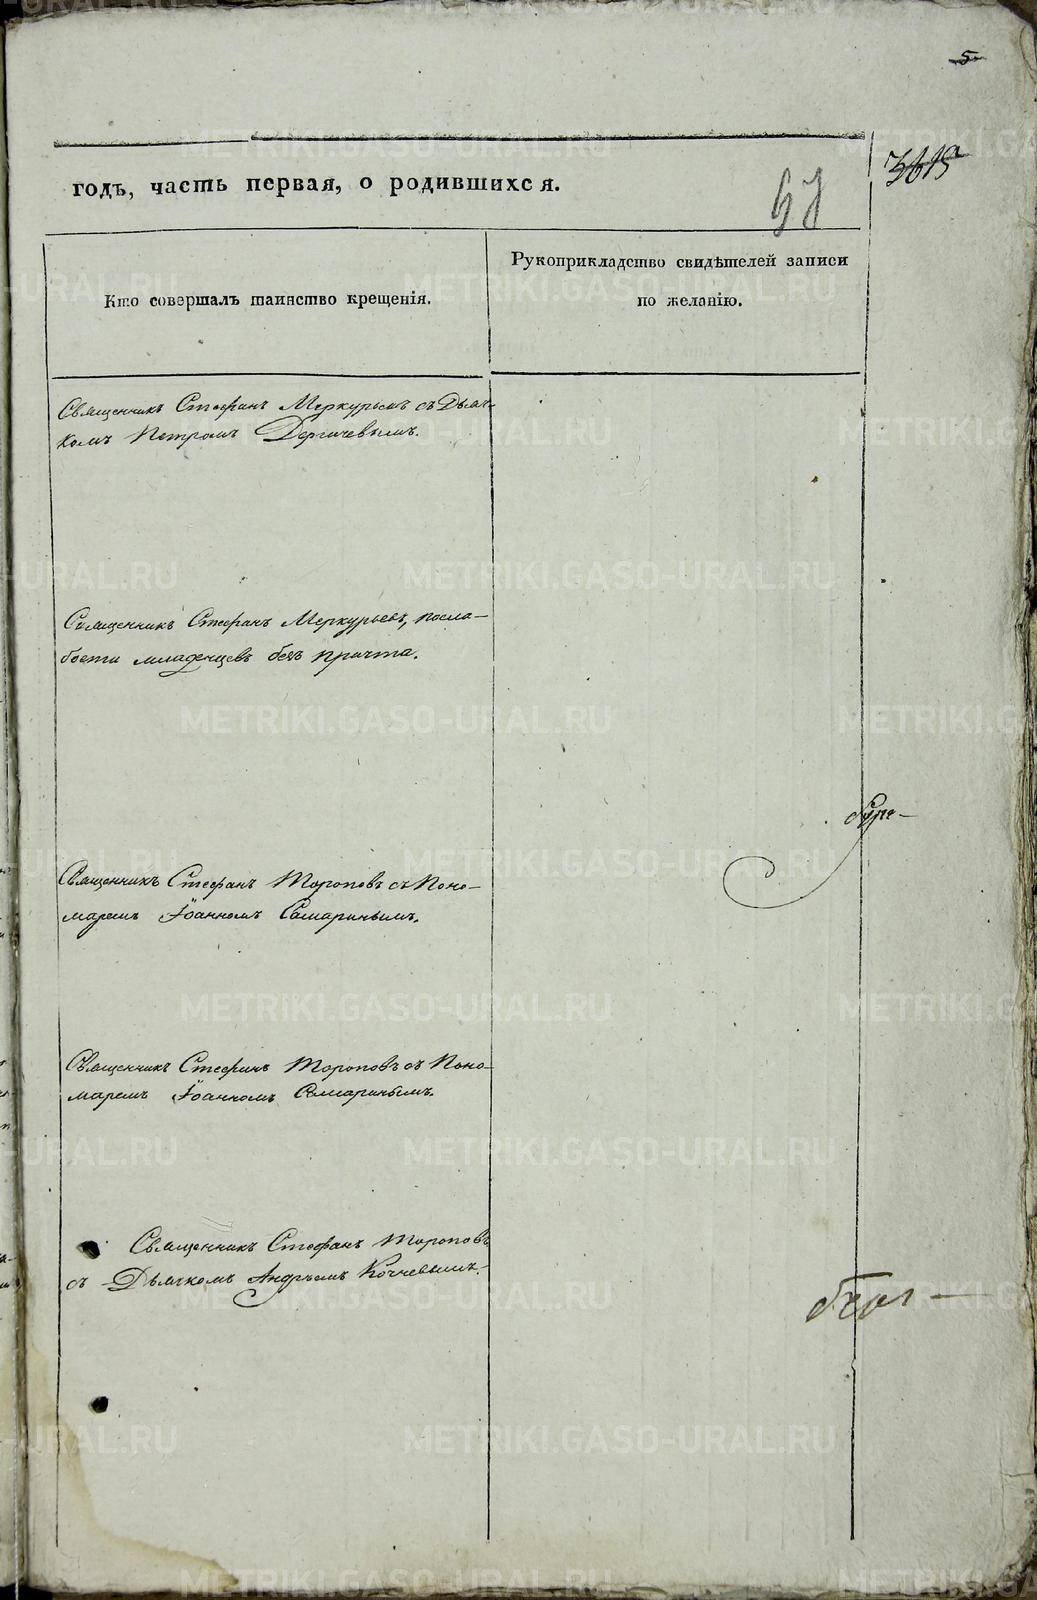 5
годъ, часть первая, о родившихся.
Кто совершалъ таинство крещенія.
Рукоприкладство свидѣтелей записи
по желанію.
Священникъ Стефанъ Меркурьевъ съ Дьяч-
комъ Петромъ Дергачевымъ.
Священникъ Стефанъ Меркурьевъ, посла-
бости младенцевъ безъ причта.
Священникъ Стефанъ Тороповъ съ Поно-
маремъ Іоанномъ Самаринымъ.
Священникъ Стефанъ Тороповъ съ Поно-
маремъ Іоанномъ Самаринымъ.
Священникъ Стефанъ Тороповъ
съ Дьячкомъ Андреемъ Кочневымъ.
METRIKI.GASO-URAL.RU